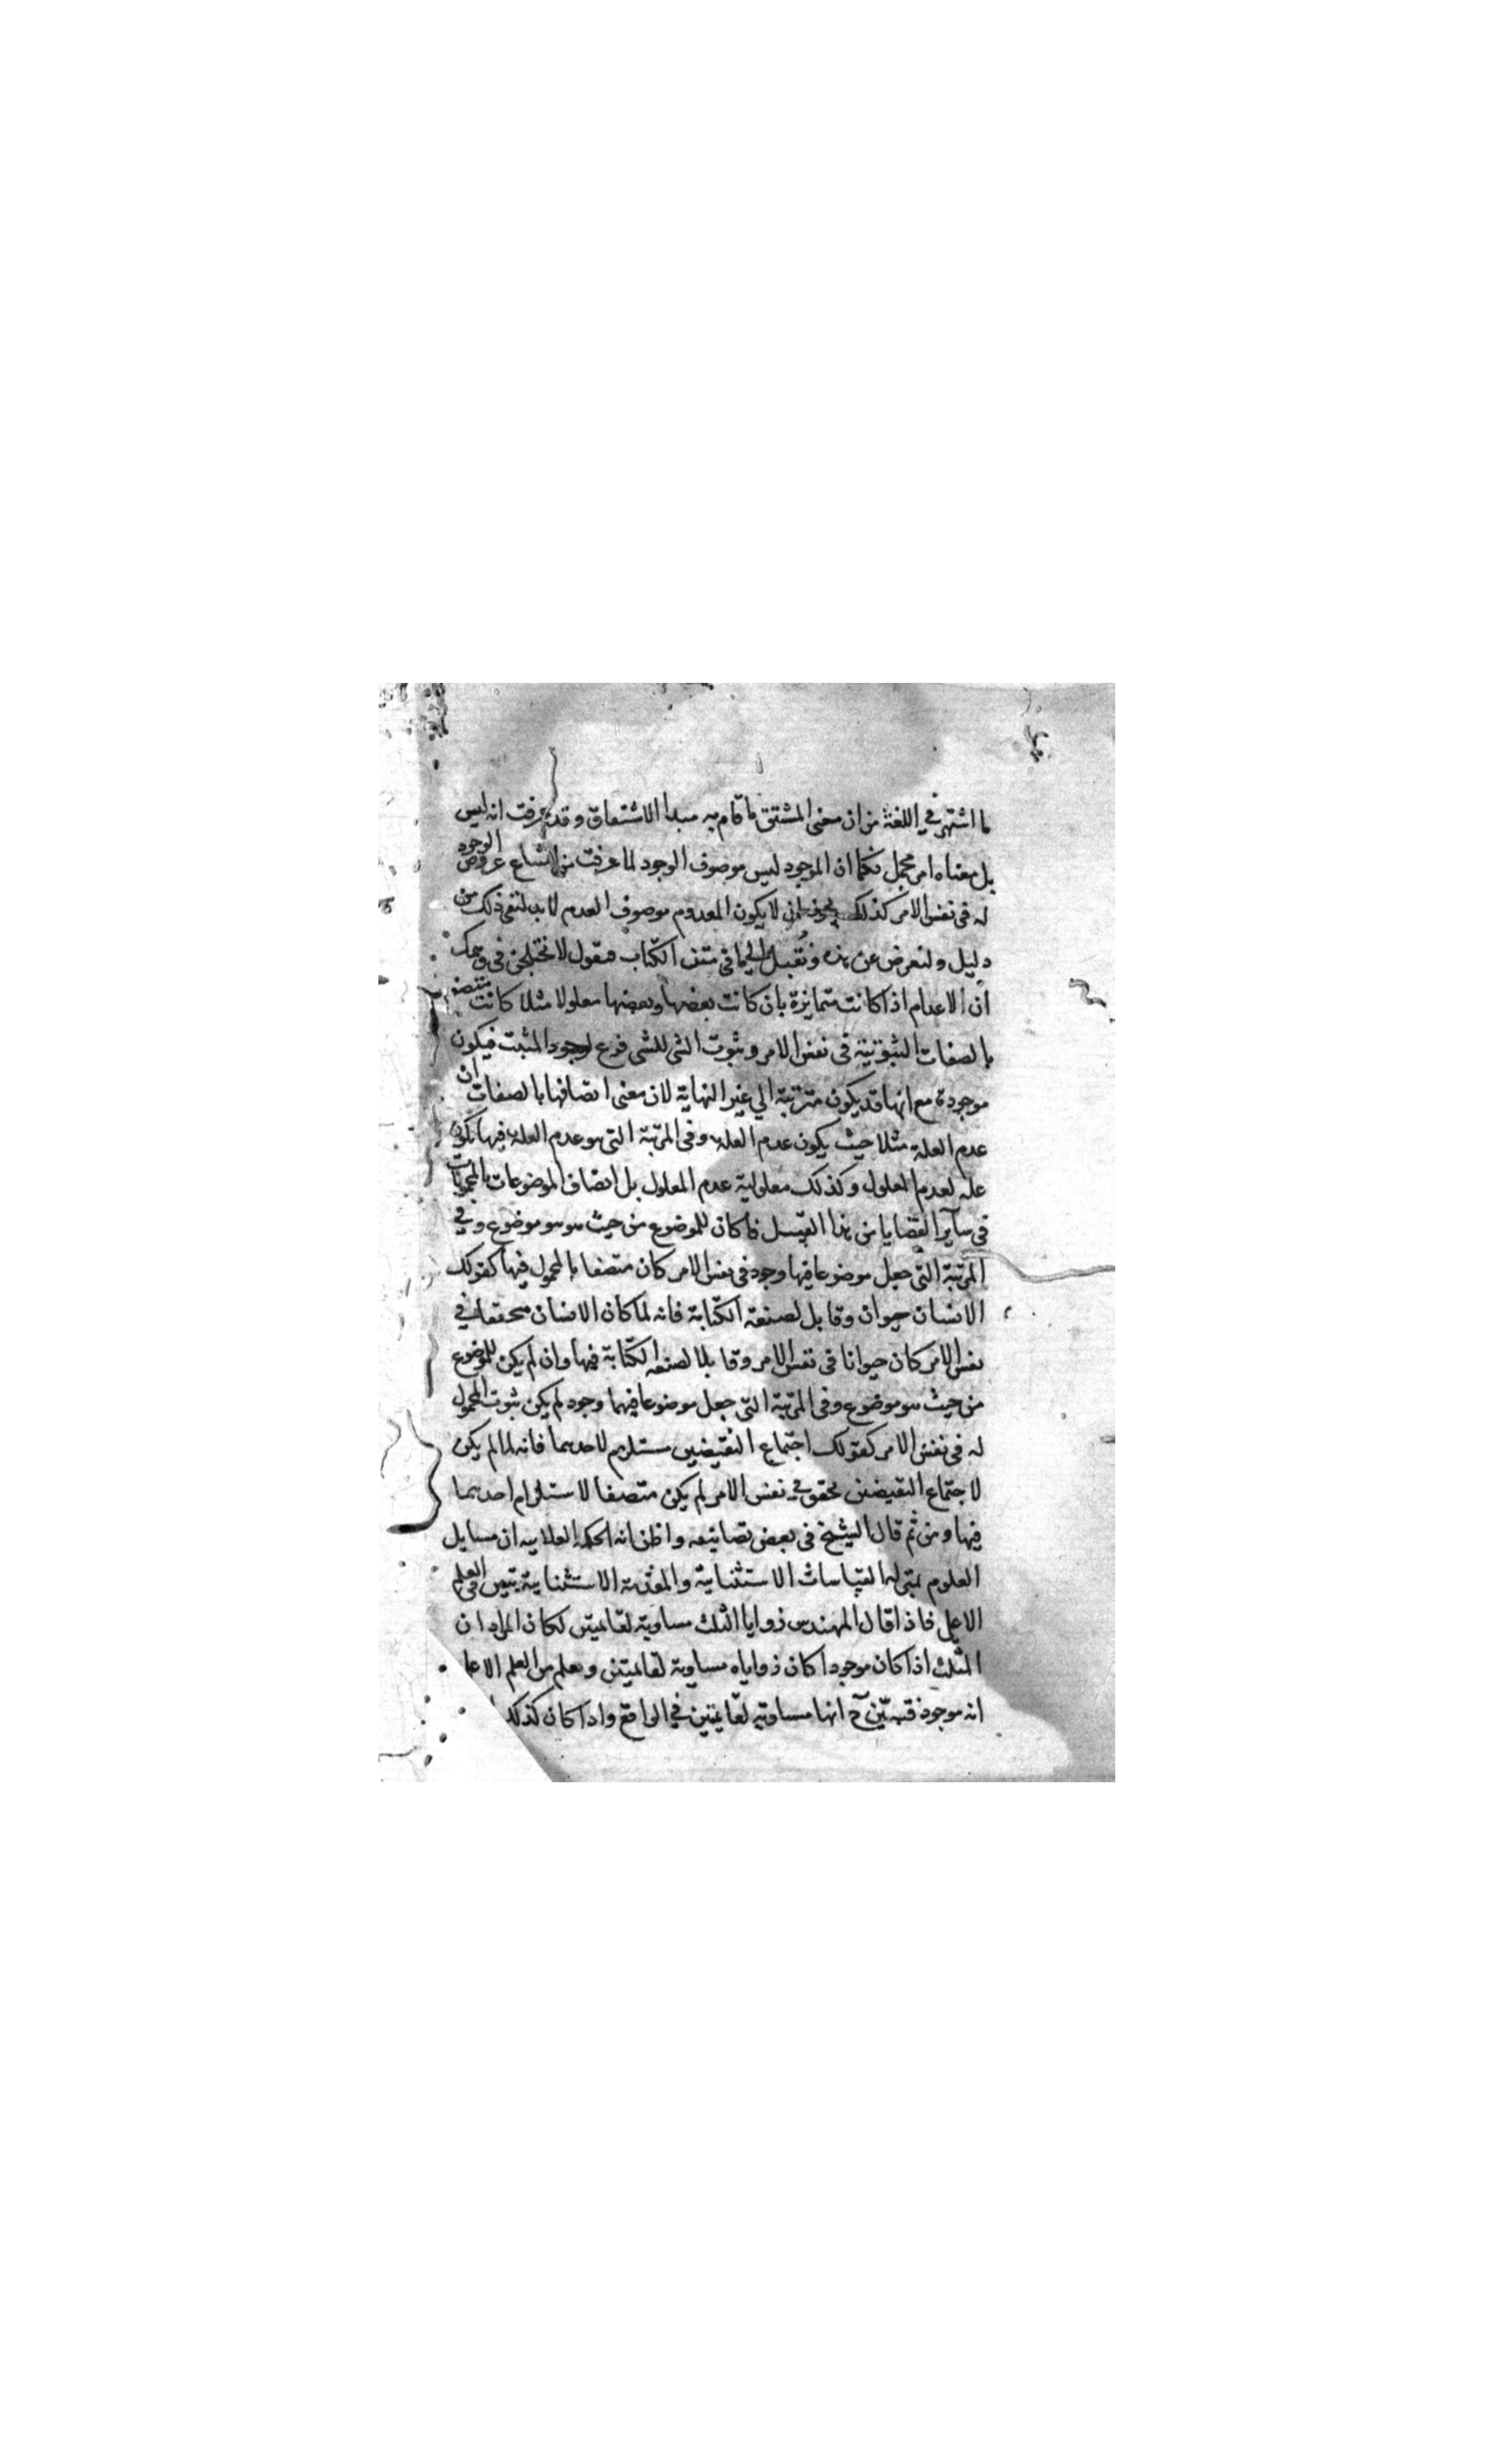 ما اشتهر في اللغة من ان معنى المشتق ما قام به مبدا الاشتقاق وقد عرفت انه ليس
بل معناه امر مجمل فكما ان الموجود ليس موصوف الوجود لما عرفت من امتناع عروض الوجود
له في نفس الامر كذلك يجوز ان لا يكون المعدوم موصوف العدم لا بد لنفي ذلك من
دليل ولنعرض عن هذه ونقبل الى ما في متن الكتاب فنقول لا تختلجن في وهمك
ان الاعدام اذا كانت متمايزة بان كانت بعضها وبعضها معلولا مثلا كانت متصفة
بالصفات الثبوتية في نفس الامر وثبوت الشي للشي فرع لوجود المثبت فيكون
موجودة مع انها قد يكون مترتبة الي غير النهاية لان معنى اتصافها بالصفات ان
عدم العلة مثلا حيث يكون عدم العلة وفي المرتبة التي هو عدم العلة فيها يكون
علة لعدم المعلول وكذلك معلولية عدم المعلول بل اتصاف الموضوعات بالمحمولات
في ساير القضايا من هذا القبيل فما كان للموضوع من حيث هو موضوع وفي
المرتبة التي جعل موضوعا فيها وجود في نفس الامر كان متصفا بالمحمول فيها كقولك
الانسان حيوان وقابل لصنعة الكتابة فانه لما كان الانسان متحققا في
نفس الامر كان حيوانا في نفس الامر وقابلا لصنعة الكتابة فيها وان لم يكن للموضوع
من حيث هو موضوع وفي المرتبة التي جعل موضوعا فيها وجود لم يكن ثبوت المحمول
له في نفس الامر كقولك اجتماع النقيضين مستلزم لاحدهما فانه لما لم يكن
لاجتماع النقيضين تحقق في نفس الامر لم يكن متصفا لاستلزام احدهما
فيها ومن ثم قال الشيخ في بعض تصانيفه واظن انه الحكمة العلاييه ان مسايل
العلوم بمنزلة القياسات الاستثنائية والمقدمة الاستثنائية تتبين في العلم
الاعلى فاذا قال المهندس زوايا المثلث مساوية لقائمتين لكان المراد ان
المثلث اذا كان موجودا كان زواياه مساوية لقائمتين ويعلم من العلم الاعلى
انه موجود فتبين ح انها مساوية لقايمتين في الواقع واذا كان كذلك